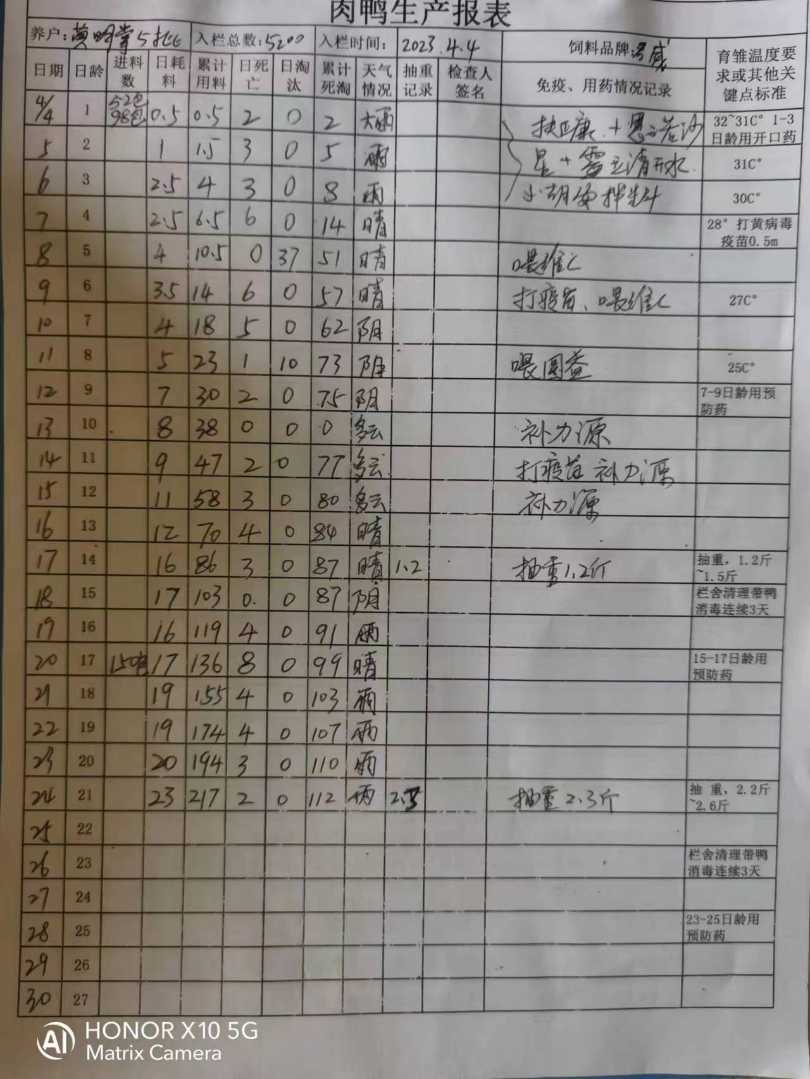 肉鸭生产报表
养户: 黄明 5批 入栏总数: 5200 入栏时间: 2023.4.4 饲料品牌 育雏温度要求或其他关键点标准
日期 日龄 进料数 日耗料 累计用料 日死亡 日淘汰 累计死淘 天气情况 抽重记录 检查人签名 免疫、用药情况记录
4/4 1 52包 98包 0.5 0.5 2 0 2 大雨 32~31C° 1-3日龄用开口药
5 2 1 1.5 3 0 5 雨 31C°
6 3 2.5 4 3 0 8 雨 30C°
7 4 2.5 6.5 6 0 14 晴 28° 打黄病毒疫苗0.5m
8 5 4 10.5 0 37 51 晴 喂维C
9 6 3.5 14 6 0 57 晴 打疫苗、喂维C 27C°
10 7 4 18 5 0 62 阴
11 8 5 23 1 10 73 阴 喂 25C°
12 9 7 30 2 0 75 阴 7-9日龄用预防药
13 10 8 38 0 0 0 多云 补力源
14 11 9 47 2 0 77 多云 打疫苗 补力源
15 12 11 58 3 0 80 多云 补力源
16 13 12 70 4 0 84 晴
17 14 16 86 3 0 87 晴 1.2 抽重1.2斤 抽重, 1.2斤~1.5斤
18 15 17 103 0. 0 87 阴 栏舍清理带鸭消毒连续3天
19 16 16 119 4 0 91 雨
20 17 150包 17 136 8 0 99 晴 15-17日龄用预防药
21 18 19 155 4 0 103 雨
22 19 19 174 4 0 107 雨
23 20 20 194 3 0 110 雨
24 21 23 217 2 0 112 雨 2.3 抽重2.3斤 抽 重, 2.2斤~2.6斤
25 22
26 23 栏舍清理带鸭消毒连续3天
27 24
28 25 23-25日龄用预防药
29 26
30 27
HONOR X10 5G
Matrix Camera